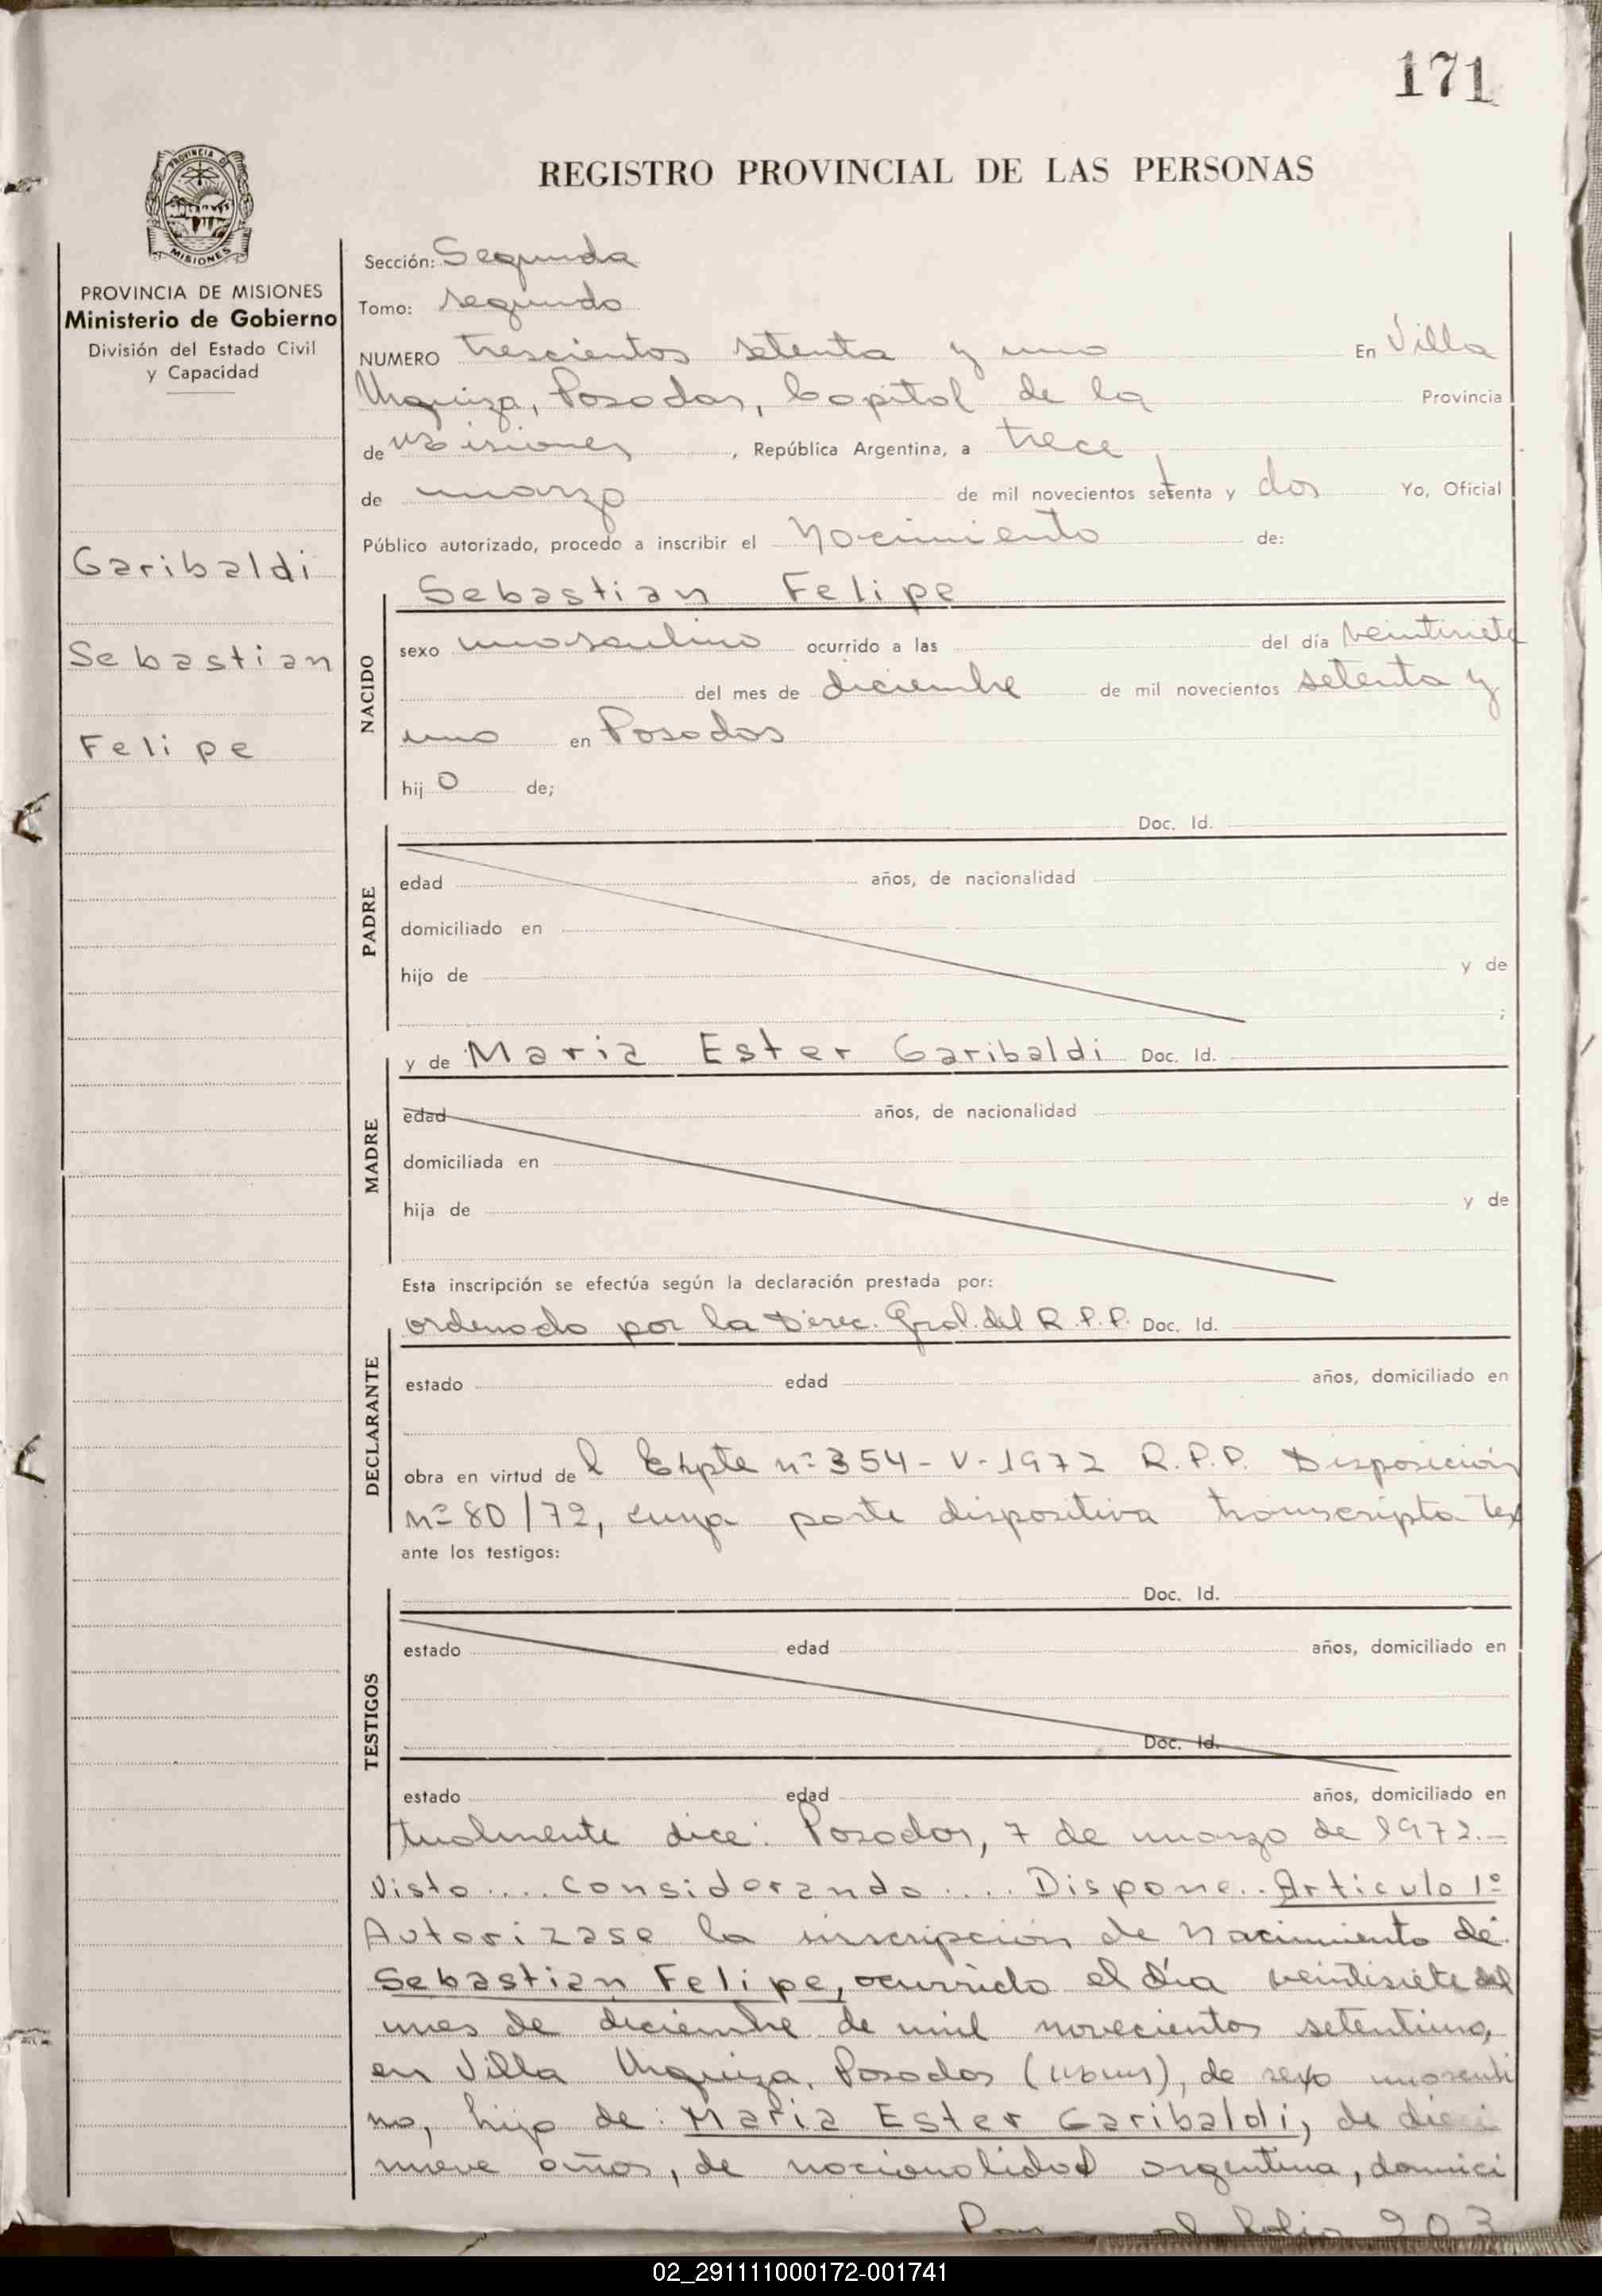 171
PROVINCIA DE
MISIONES
REGISTRO PROVINCIAL DE LAS PERSONAS
PROVINCIA DE MISIONES
Ministerio de Gobierno
División del Estado Civil
y Capacidad
Garibaldi
Sebastian
Felipe
Sección: Segunda
Tomo: segundo
NUMERO trescientos setenta y uno En Villa
Urquiza, Posadas, Capital de la Provincia
de Misiones, República Argentina, a trece
de marzo de mil novecientos setenta y dos Yo, Oficial
Público autorizado, procedo a inscribir el Nacimiento de:
NACIDO
Sebastian Felipe
sexo masculino ocurrido a las del día veintisiete
del mes de diciembre de mil novecientos setenta y
uno en Posadas
hijo de;
PADRE
Doc. Id.
edad años, de nacionalidad
domiciliado en
hijo de y de
;
MADRE
y de Maria Ester Garibaldi Doc. Id.
edad años, de nacionalidad
domiciliada en
hija de y de
Esta inscripción se efectúa según la declaración prestada por:
DECLARANTE
ordenado por la Direc. Gral. del R.P.P. Doc. Id.
estado edad años, domiciliado en
obra en virtud del Expte nº 354-V-1972 R.P.P. Disposición
nº 80/72, cuya parte dispositiva transcripta tex
ante los testigos:
TESTIGOS
Doc. Id.
estado edad años, domiciliado en
Doc. Id.
estado edad años, domiciliado en
tualmente dice: Posadas, 7 de marzo de 1972.-
Visto .... Considerando .... Dispone.. Articulo 1º
Autorizase la inscripción de Nacimiento de:
Sebastian Felipe, ocurrido el día veintisiete del
mes de diciembre de mil novecientos setentiuno,
en Villa Urquiza, Posadas (Mnes), de sexo masculi
no, hijo de: Maria Ester Garibaldi, de dieci
nueve años, de nacionalidad argentina, domici
al folio 203
02_291111000172-001741